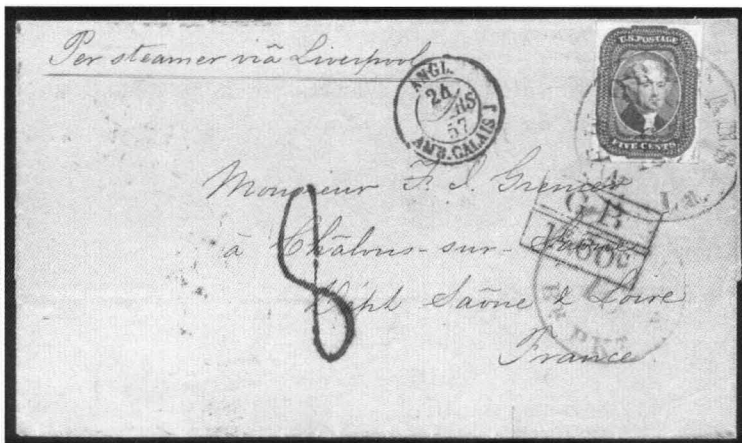 Per steamer viâ Liverpool
ANGL.
24
RS
57
AMB. CALAIS J
U.S. POSTAGE
FIVE CENTS
La.
Monsieur F. S.
G B
1F60c
à Châlons-sur-Saône
8
Dépt Saône & Loire
PKT
France